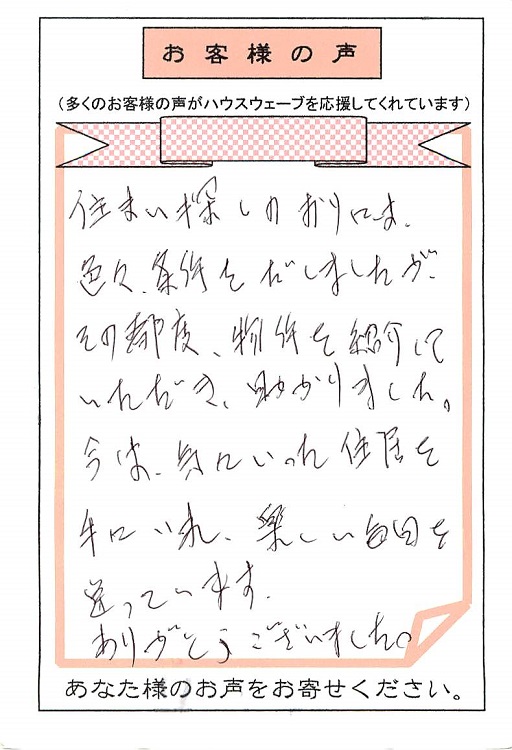 お客様の声
(多くのお客様の声がハウスウェーブを応援してくれています)
住まい探しのおりには、
色々、条件をだしましたが、
その都度、物件を紹介して
いただき、助かりました。
今は、気にいった住居を
手にいれ、楽しい毎日を
送っています。
ありがとうございました。
あなた様のお声をお寄せください。